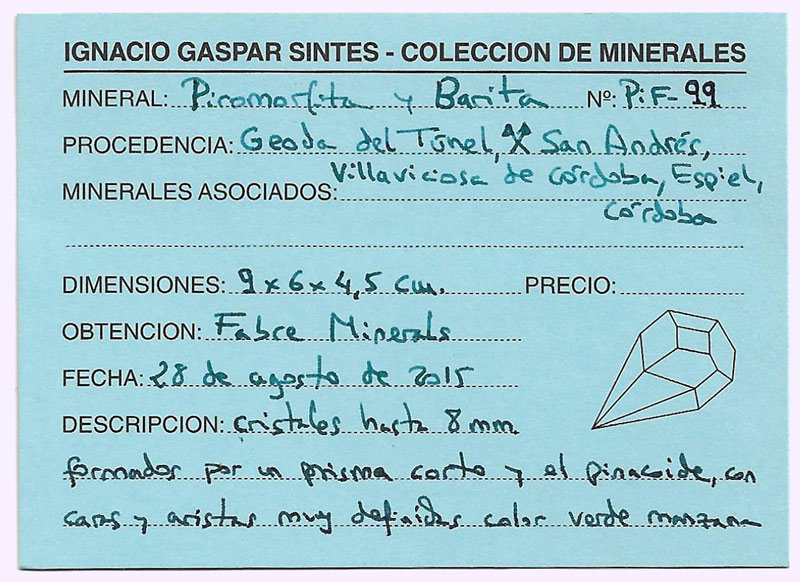 IGNACIO GASPAR SINTES - COLECCION DE MINERALES
MINERAL: Piromorfita y Barita Nº: P:F-99
PROCEDENCIA: Geoda del Túnel, San Andrés,
Villaviciosa de Córdoba, Espiel,
MINERALES ASOCIADOS:
Córdoba
DIMENSIONES: 9 x 6 x 4,5 cm. PRECIO:
OBTENCION: Fabre Minerals
FECHA: 28 de agosto de 2015
DESCRIPCION: cristales hasta 8 mm.
formados por un prisma corto y el pinacoide, con
caras y aristas muy definidas color verde manzana